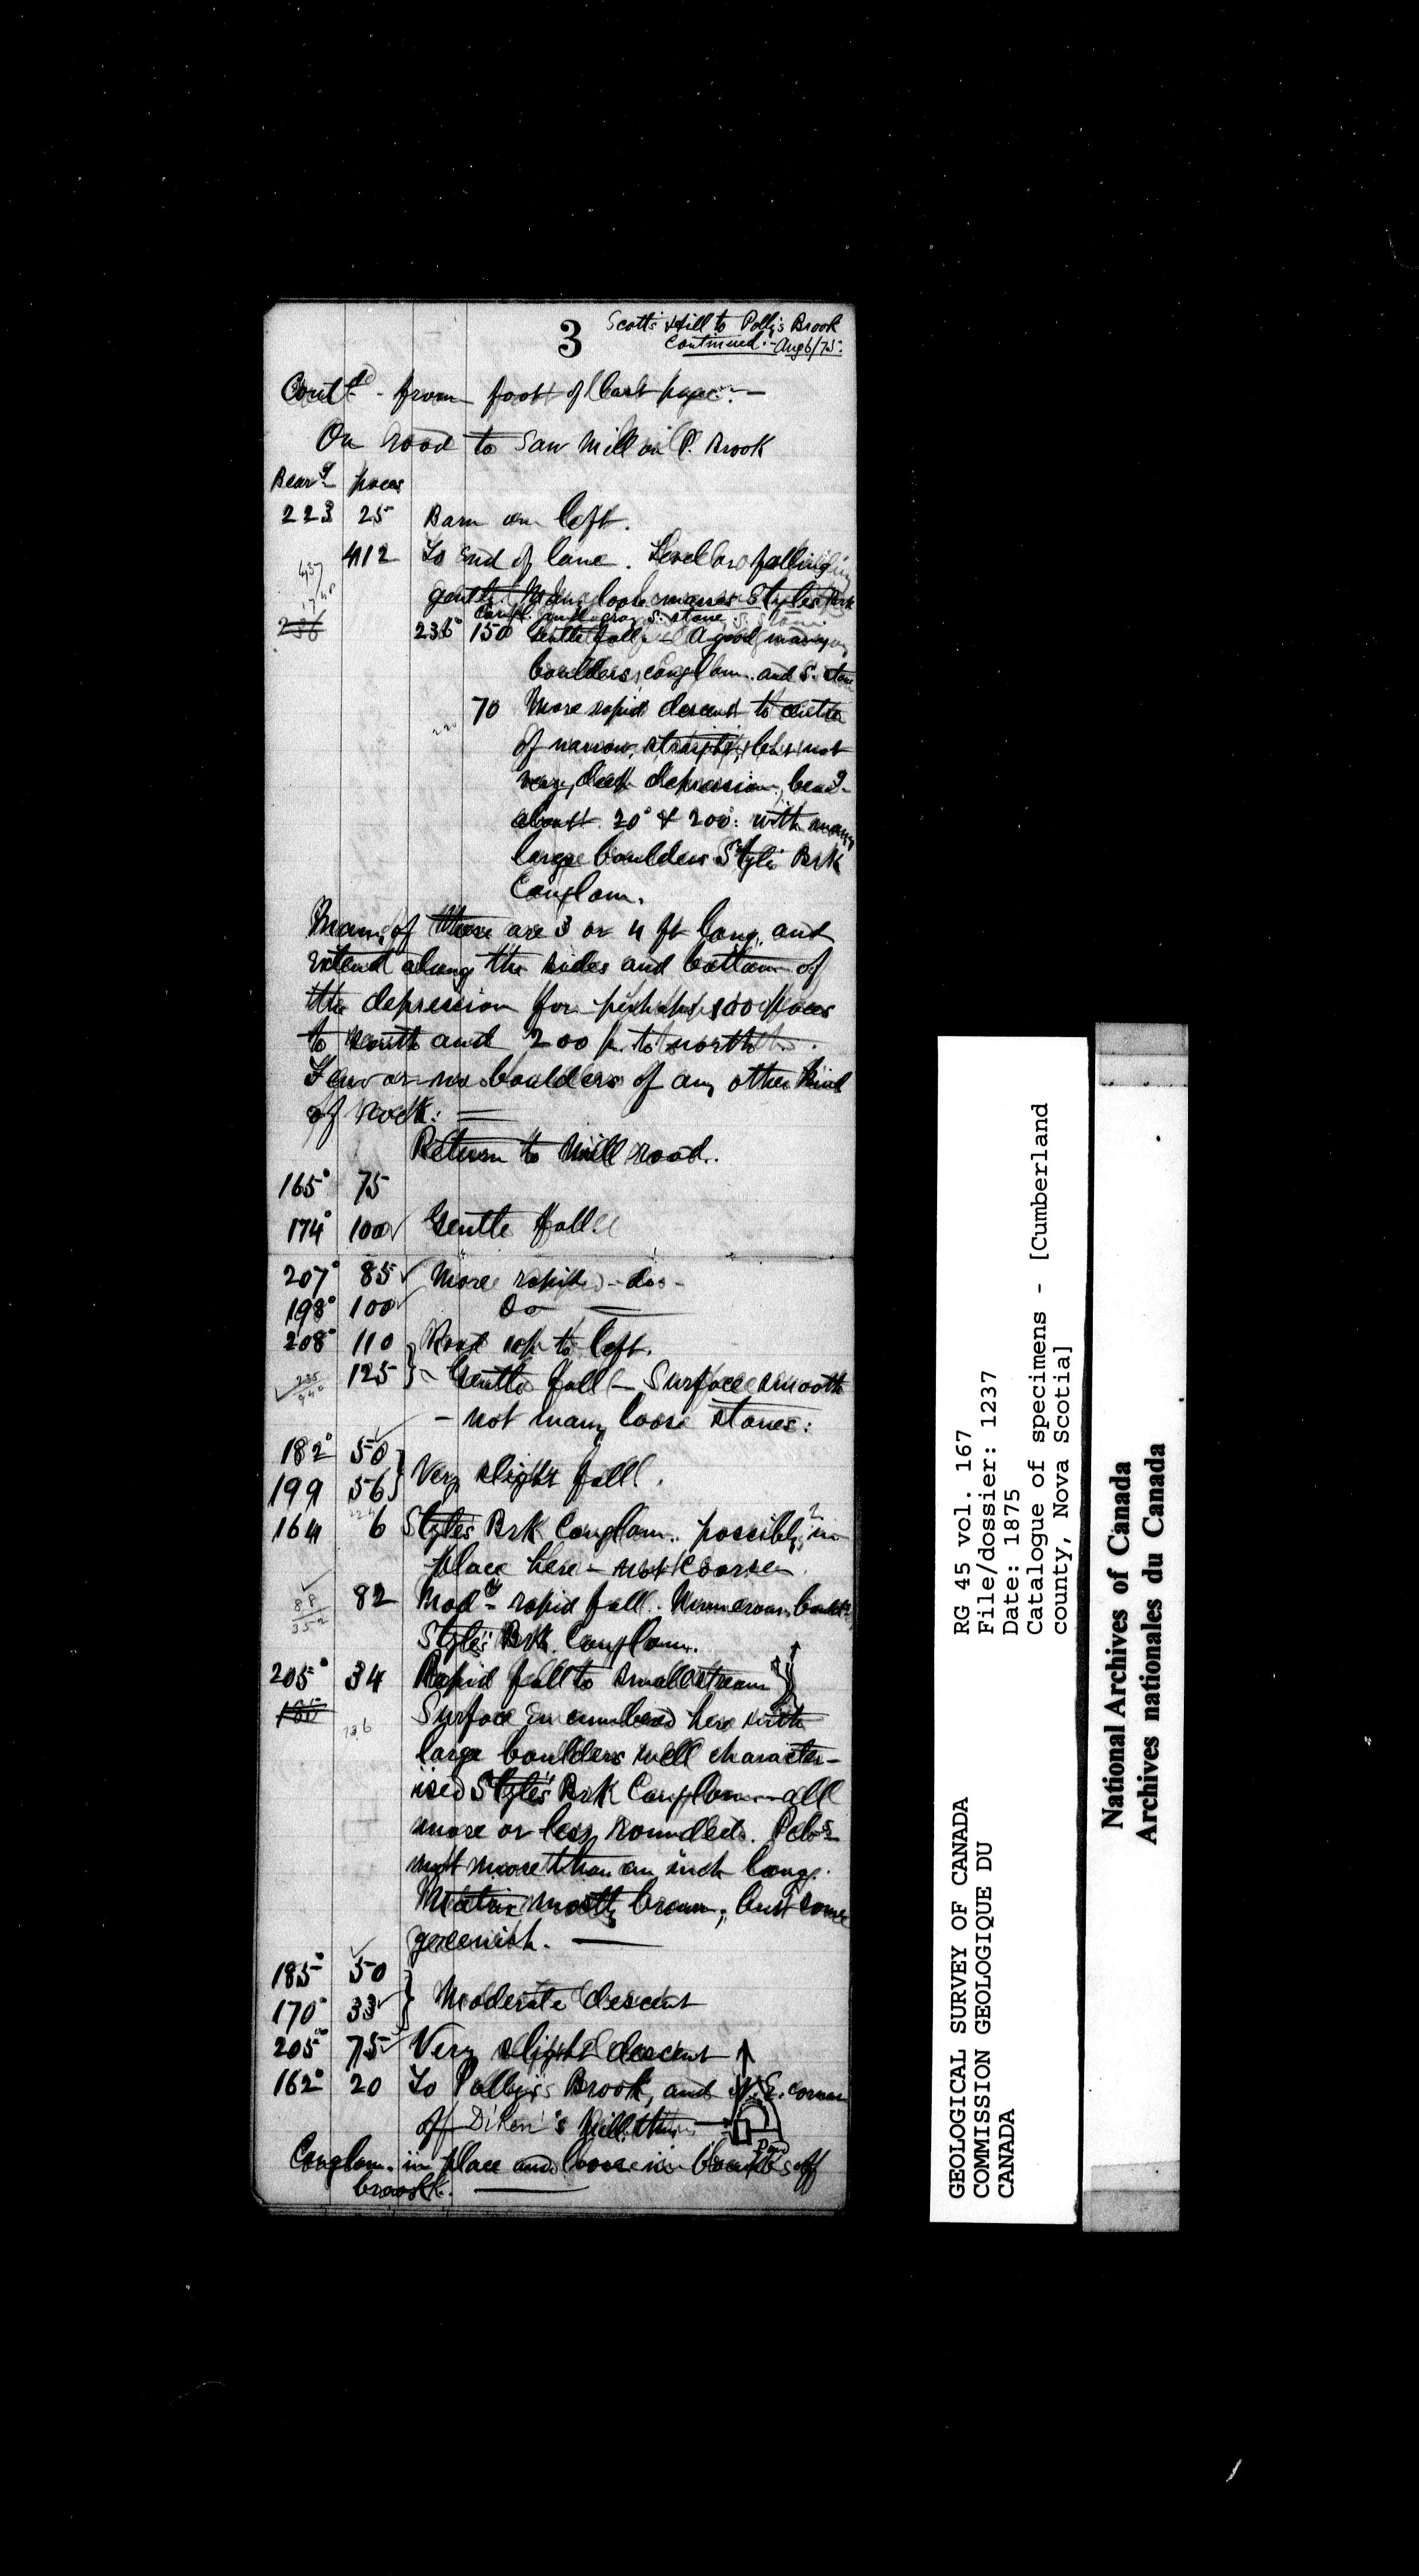 3
Scott's Hill to Polly's Brook
Continued:- Aug 6/75:
Contd - from foot of last page:—
On road to Saw Mill on P. Brook
Bearg paces
223 25 Barn on left.
412 To End of lane. Level or falling
437
1748
gently. Many loose masses Styles Brk
Congl. and gray S. stone
236 236° 150 Gentle fall - A good many
boulders, conglom. and S. stone
70 More rapid descent to centre
of narrow, straight, but not
very deep depression, bearg
about 20° & 200°: with many
large boulders Styles Brk
Conglom.
Many of these are 3 or 4 ft long, and
Extend along the sides and bottom of
the depression for perhaps 100 paces
to south and 200 p. to north.
Few or no boulders of any other kind
of rock:
Return to Mill road.
165° 75
174° 100 Gentle fall
207° 85 More rapid - do -
198° 100 Do
208° 110 Road up to left.
125 Gentle fall - Surface smooth
235
940
- not many loose stones:
182° 50
Very slight fall.
199 56
164 6 Styles Brk Conglom. possibly ? in
place here - not coarse.
82 Mody rapid fall. Numerous bould
88
352
Styles Brk. Conglom.
205° 34 Rapid fall to small stream
Surface Encumbered here with
136
large boulders well character-
ised Style's Brk Conglom - all
more or less rounded. Pebs
not more than an inch long.
Matrix mostly brown, but some
greenish.
185° 50
Moderate descent
170° 33
205° 75 Very slight descent
162° 20 To Polly's Brook, and N.E. corner
of 's Mill thus
Dam
Conglom. in place and loose in banks of
brook.
GEOLOGICAL SURVEY OF CANADA
COMMISSION GEOLOGIQUE DU
CANADA
RG 45 vol. 167
File/dossier: 1237
Date: 1875
Catalogue of specimens - [Cumberland
county, Nova Scotia]
National Archives of Canada
Archives nationales du Canada